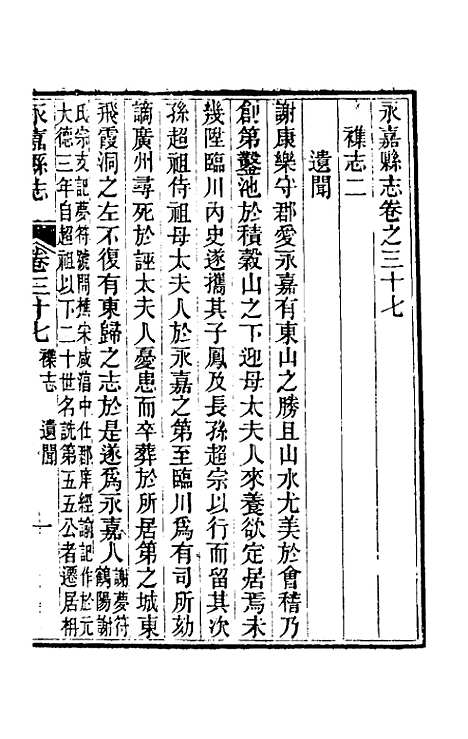 永嘉縣志卷之三十七
襍志二
遺聞
謝康樂守郡愛永嘉有東山之勝且山水尤美於會稽乃
創第鑿池於積穀山之下迎母太夫人來養欲定居焉未
幾陞臨川內史遂攜其子鳳及長孫超宗以行而留其次
孫超祖侍祖母太夫人於永嘉之第至臨川爲有司所劾
謫廣州尋死於誣太夫人憂患而卒葬於所居第之城東
飛霞洞之左不復有東歸之志於是遂爲永嘉人謝夢符鶴陽謝
氏宗支記夢符號閒樵宋咸淳中仕郡庠經諭記作於元
大德三年自超祖以下二十世名詵第五五公者遷居枏
永嘉縣志 卷三十七 襍志 遺聞 一